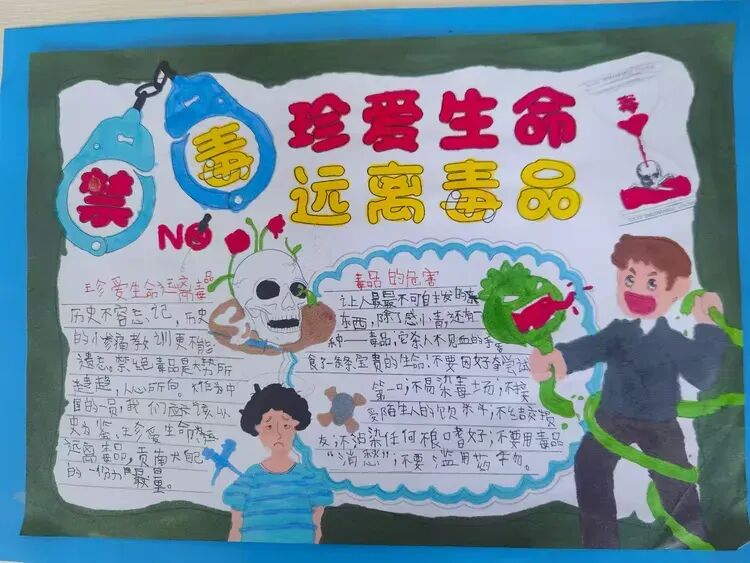 禁
毒
珍爱生命
远离毒品
毒
NO
珍爱生命远离毒品
历史不容忘记，历史
的惨痛教训更不能
遗忘。禁绝毒品是大势所
趋，人心所向。作为中
国的一员，我们应该以
史为鉴、珍爱生命
远离毒品，贡献自己
的一份力量。
毒品的危害
让人最最不可自
东西，除了感
种——毒品，它杀人不见血的手
食了一条条宝贵的生命；不要因好奇尝试
第一口；不易染毒土场；不接
受陌生人的饮；不结交损
友；不沾染任何不良嗜好；不要用毒品
“消愁”；不要滥用药物。